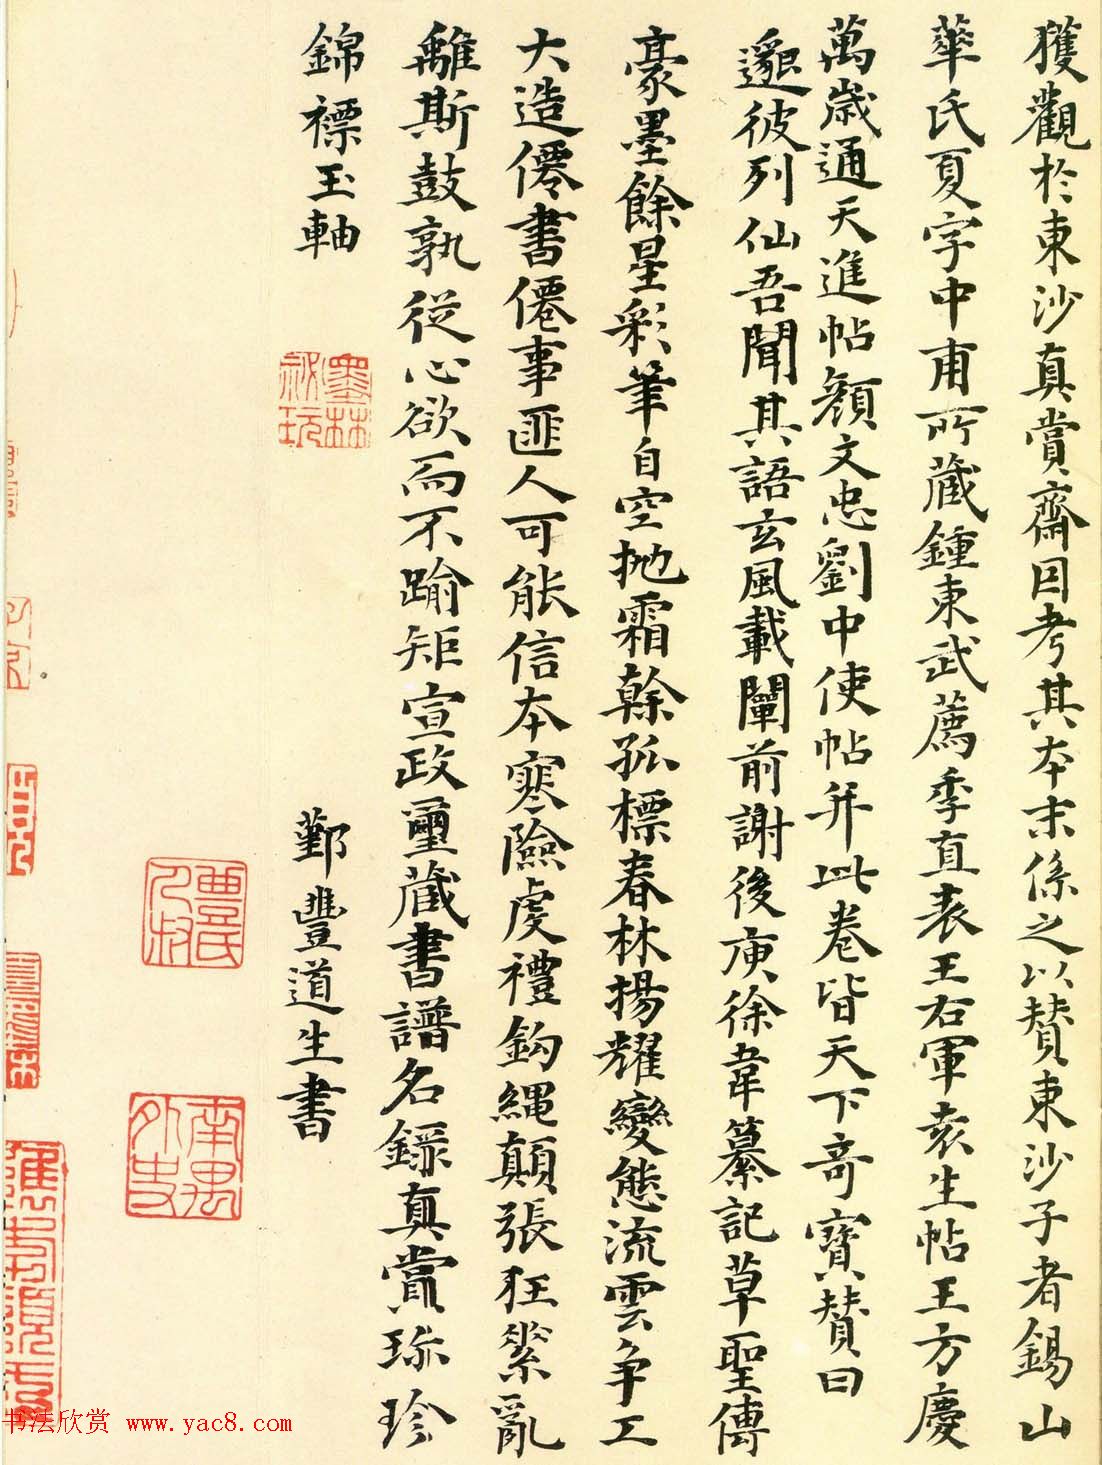 獲觀於東沙真賞齋因考其本末係之以賛東沙子者錫山
華氏夏字中甫所藏鍾東武薦季直表王右軍袁生帖王方慶
萬歲通天進帖顏文忠劉中使帖并此卷皆天下奇寶賛曰
邈彼列仙吾聞其語玄風載闡前謝後庾徐韋纂記草聖傳
豪墨餘星彩筆自空拋霜榦孤標春林揚耀變態流雲争工
大造僊書僊事匪人可能信本寒險虔禮鈎繩顛張狂縈亂
離斯鼓孰從心欲而不踰矩宣政璽藏書譜名錄真賞珎珍
錦褾玉軸
鄞豐道生書
墨林
祕玩
豐氏
人叔
南禺
外史
书法欣赏 www.yac8.com